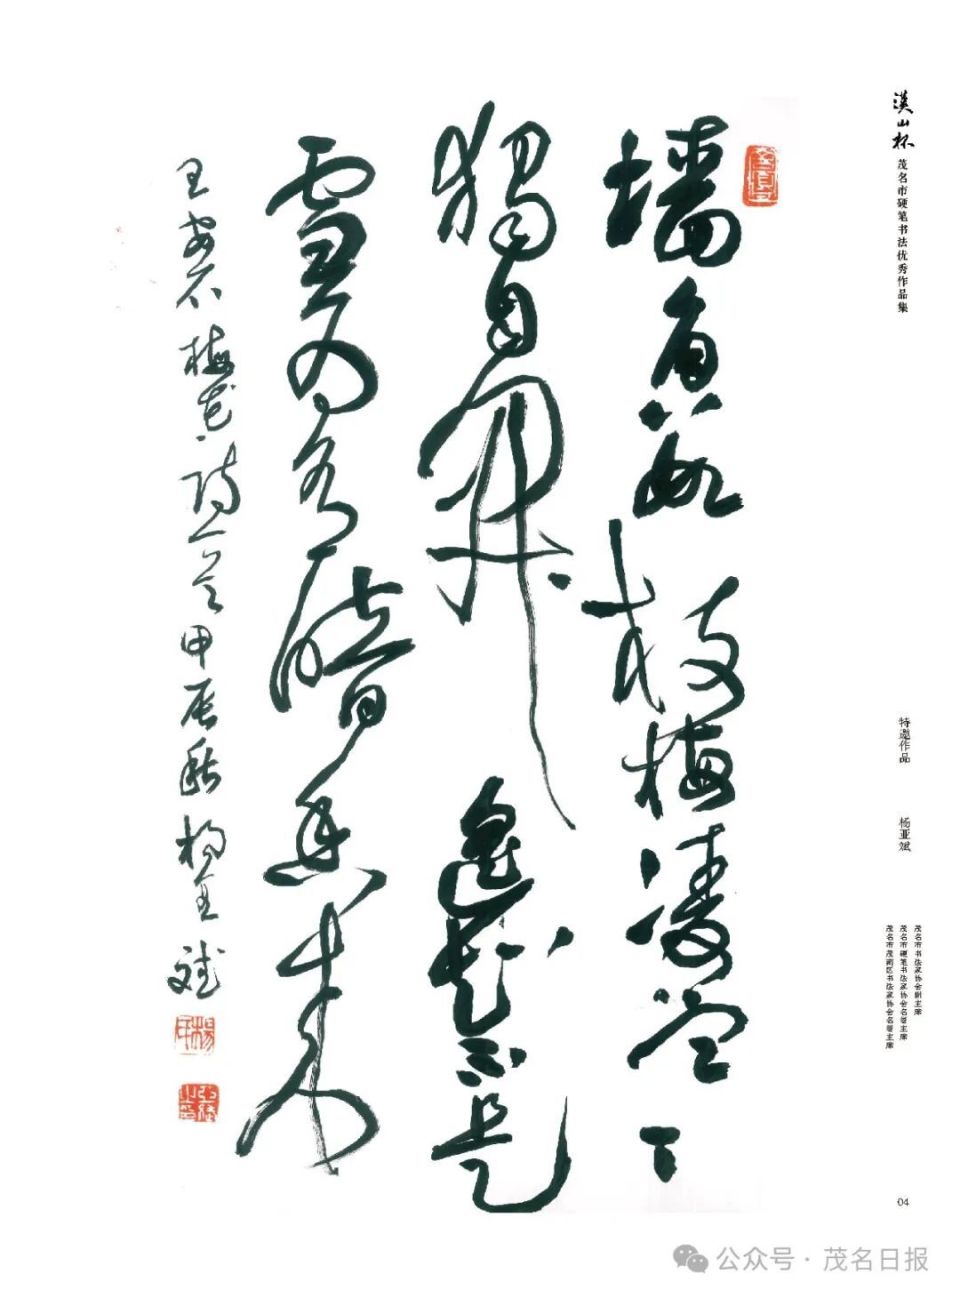 茂名市硬笔书法优秀作品集
特邀作品 杨亚斌
茂名市书法家协会副主席
茂名市硬笔书法家协会名誉主席
茂名市茂南区书法家协会名誉主席
墙角数枝梅凌寒
独自開遥知不是
雪为有暗香来
王安石梅花诗一首甲辰秋杨亚斌
04
公众号·茂名日报